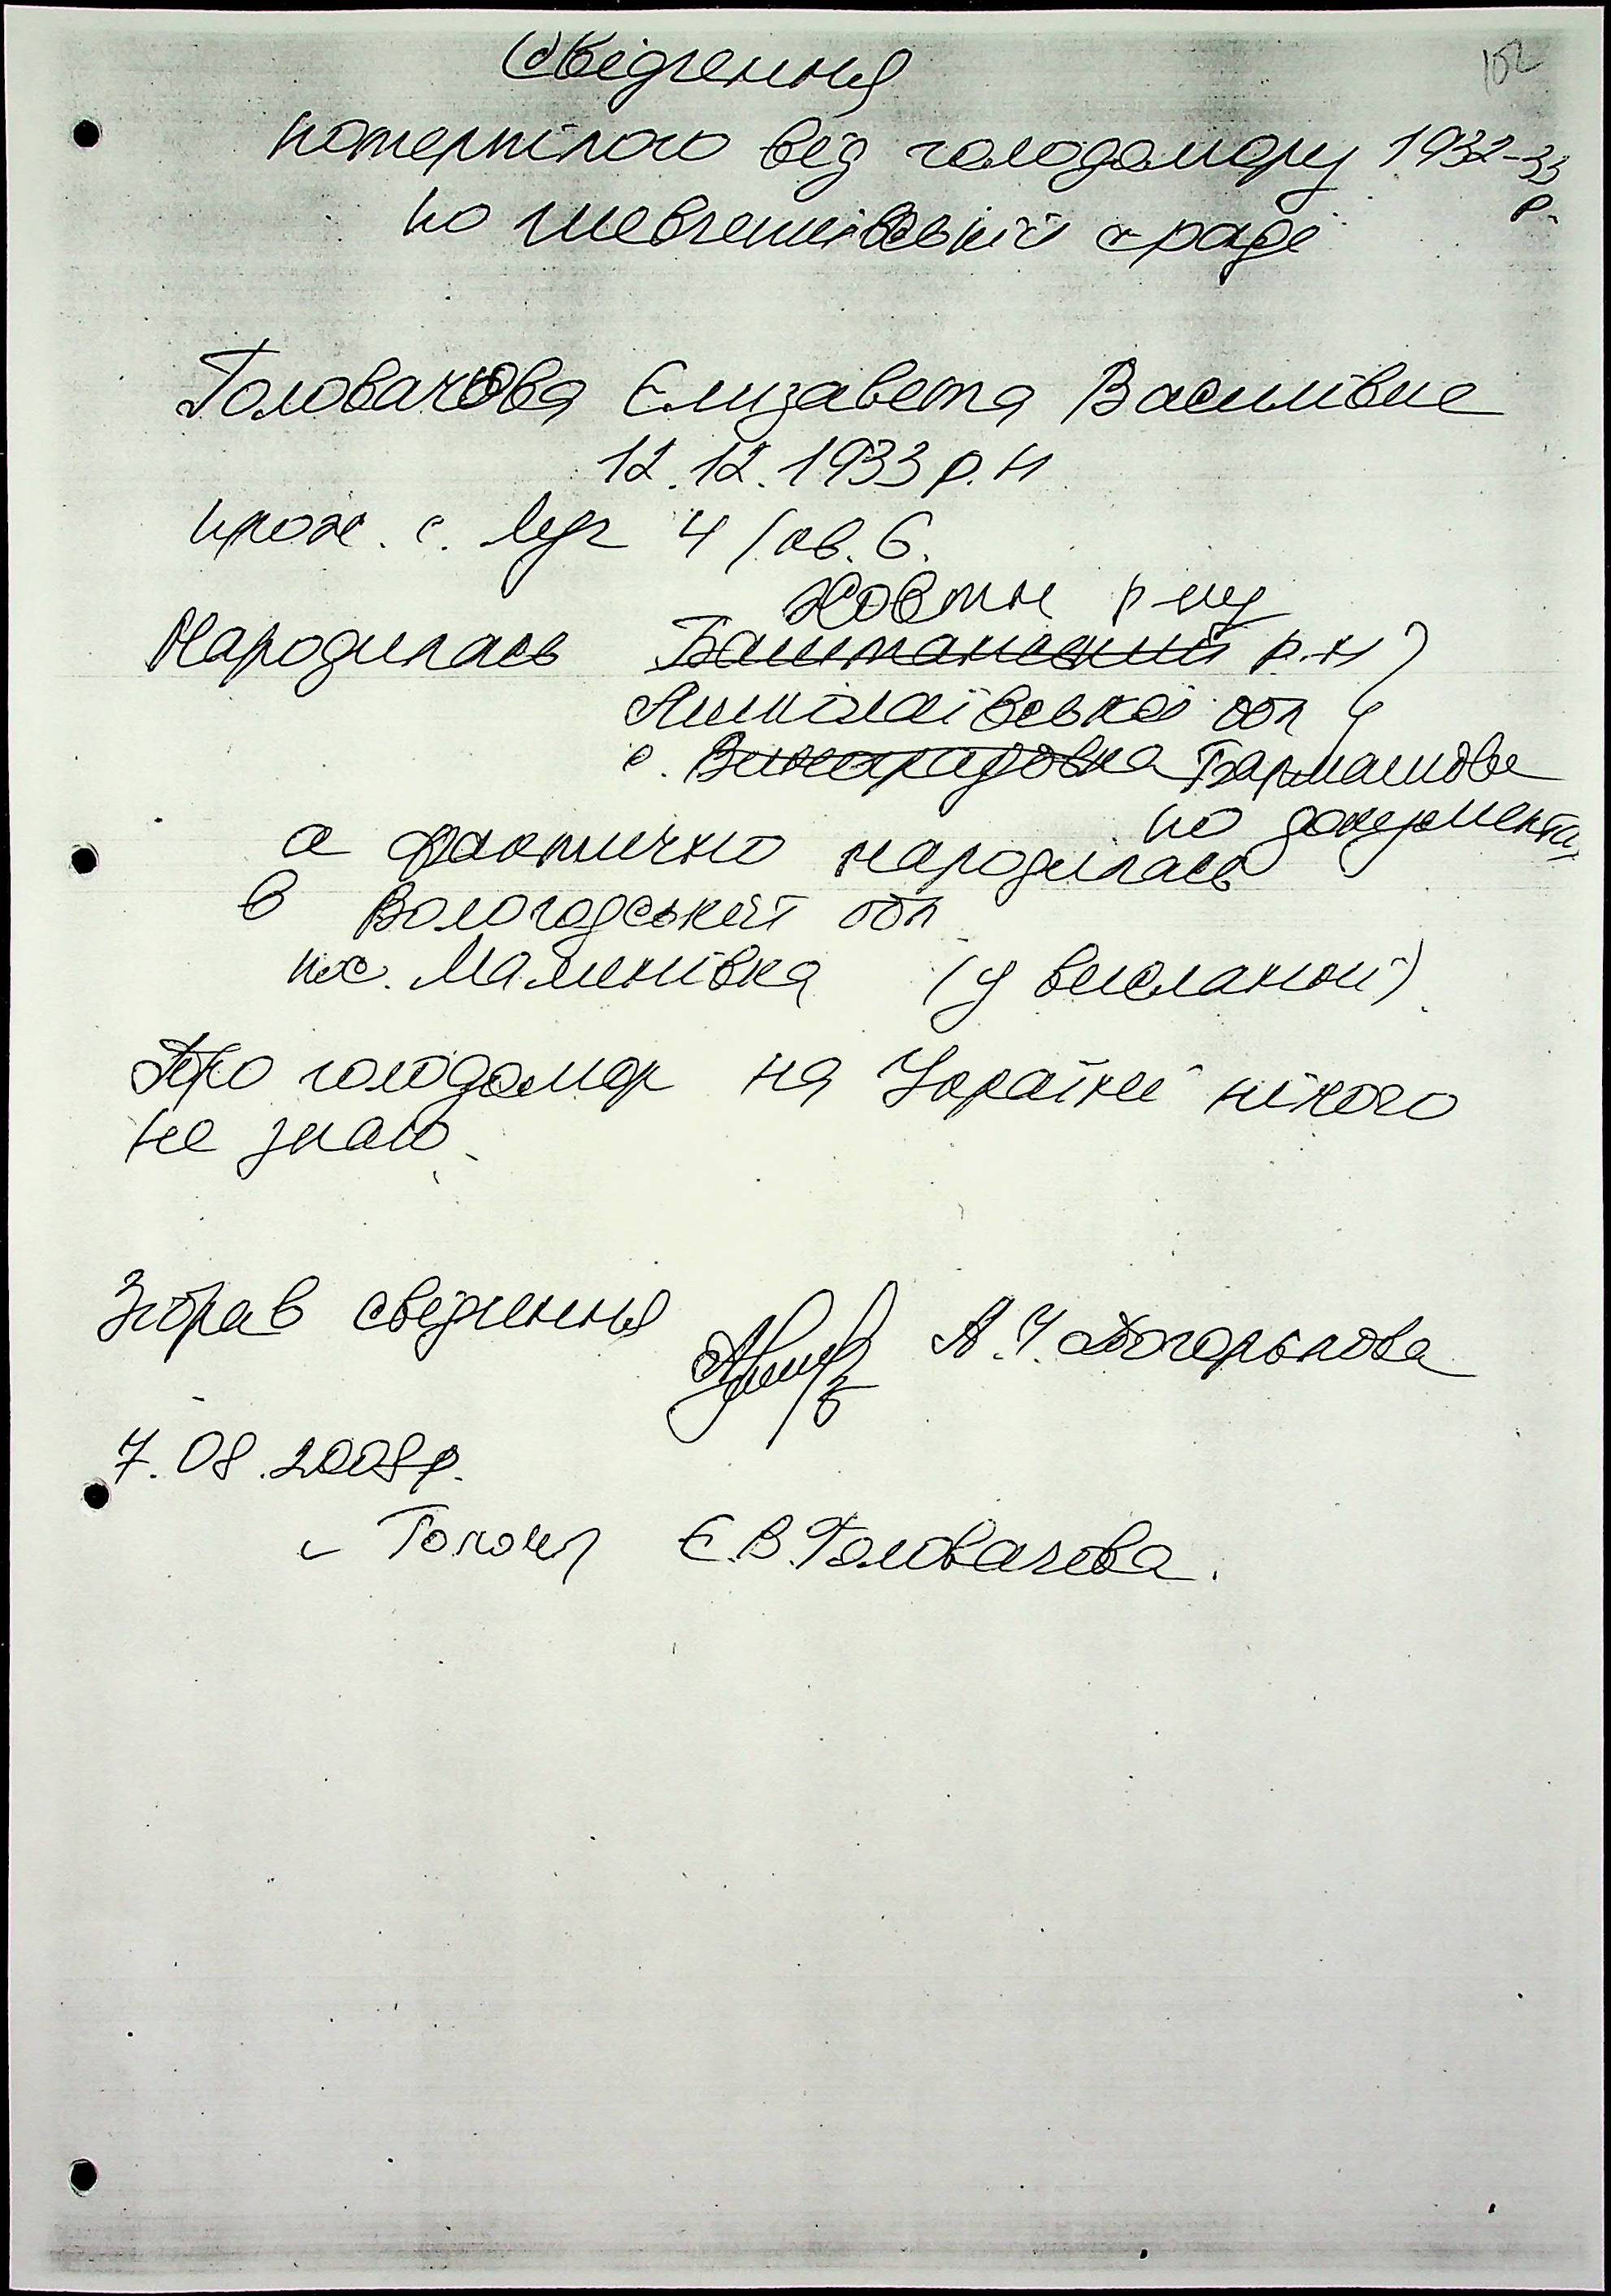 102
Свідчення
потерпілого від голодомору 1932-33
р.
по Шевченківській с/раді
Головачова Єлизавета Василівна
12.12.1933 р.н
прож. с. Луч 4/кв. 6.
Жовтн. р-ну
Народилась Баштанський р-н
Миколаївської обл
с. Виноградовка Бармашова
по документах
а фактично народилась
в Вологодській обл
пос. Малинівка (у висланні).
Про голодомор на Україні нічого
не знаю.
Зібрав свідчення А.І.
7.08.2008р.
Є.В. Головачова.